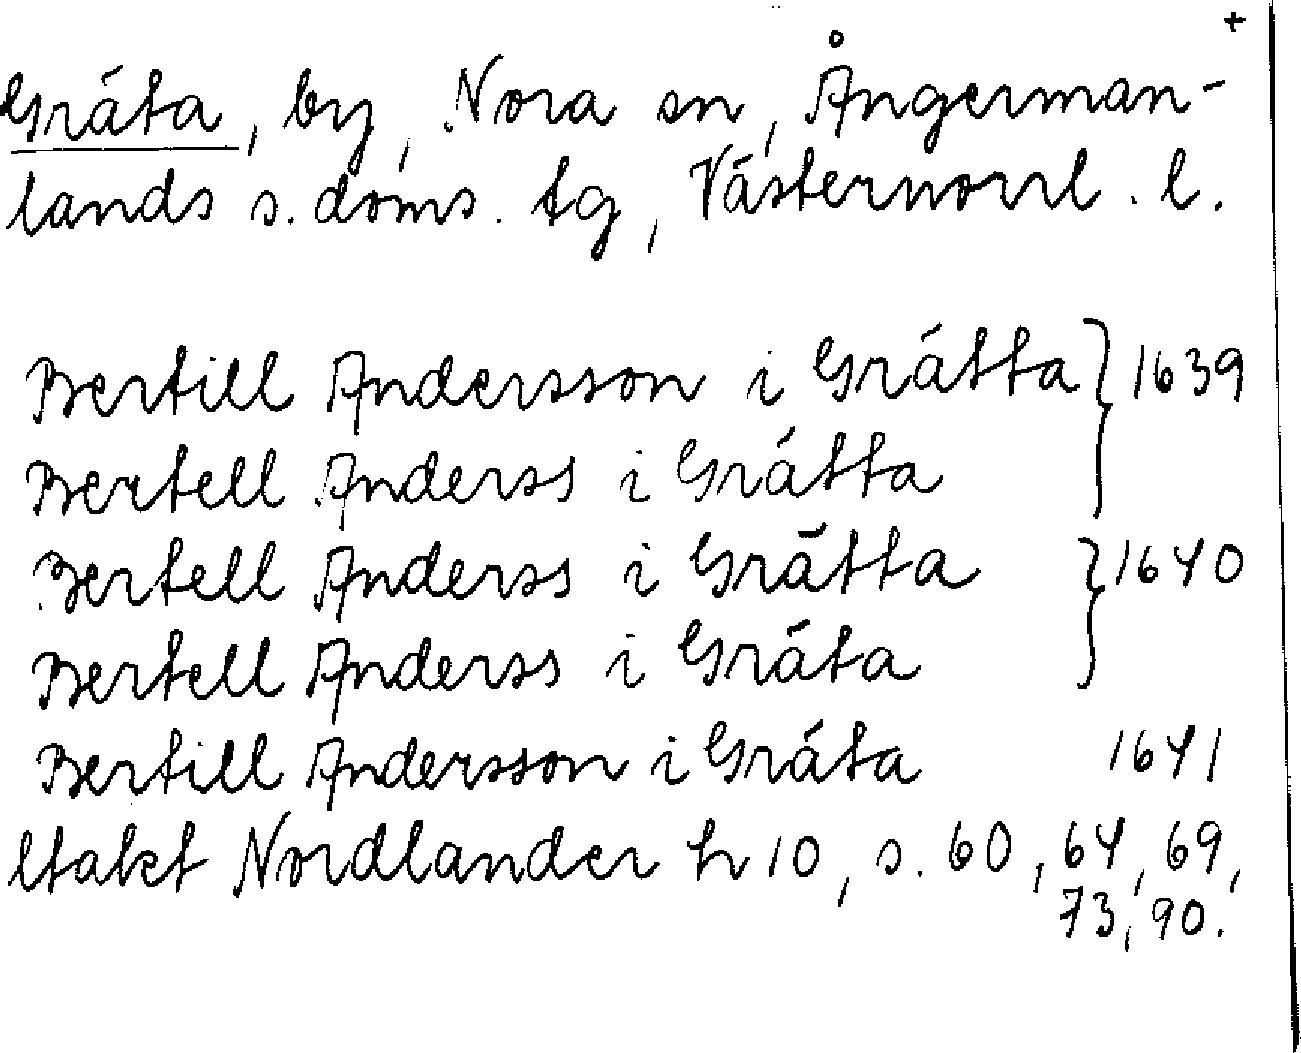 +
Gräta, by, Nora sn, Ångerman-
lands s. doms. tg, Västernorrl. l.
Bertill Andersson i Grätta } 1639
Bertell Anderss i Grätta
Bertell Anderss i Grätta } 1640
Bertell Anderss i Gräta
Bertill Andersson i Gräta 1641
Nordlander h 10, s. 60, 64, 69,
73, 90.